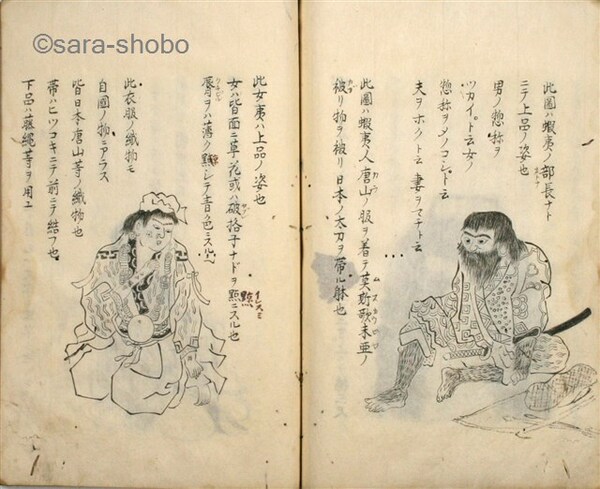 ©sara-shobo
此圖ハ蝦夷ノ部長ナト
ニテ上品ノ姿也
男ノ惣称ヲ
ツカイ。ト云女ノ
惣称ヲメノコシト云
夫ヲホクト云妻ヲマチト云
此圖ハ蝦夷人唐山ノ服ヲ着テ莫斯歌未亜ノ
被リ物ヲ被リ日本ノ太刀ヲ帶ル躰也
此女夷ハ上品ノ姿也
女ハ皆面ニ草花或ハ破格子ナドヲ點ニスル也
唇ヲハ薄ク點シテ青色ニスル
此衣服ノ織物モ
自國ノ物ニアラス
皆日本唐山等ノ織物也
帶ハヒツコキニテ前ニテ結フ也
下品ハ藤縄等ヲ用ユ